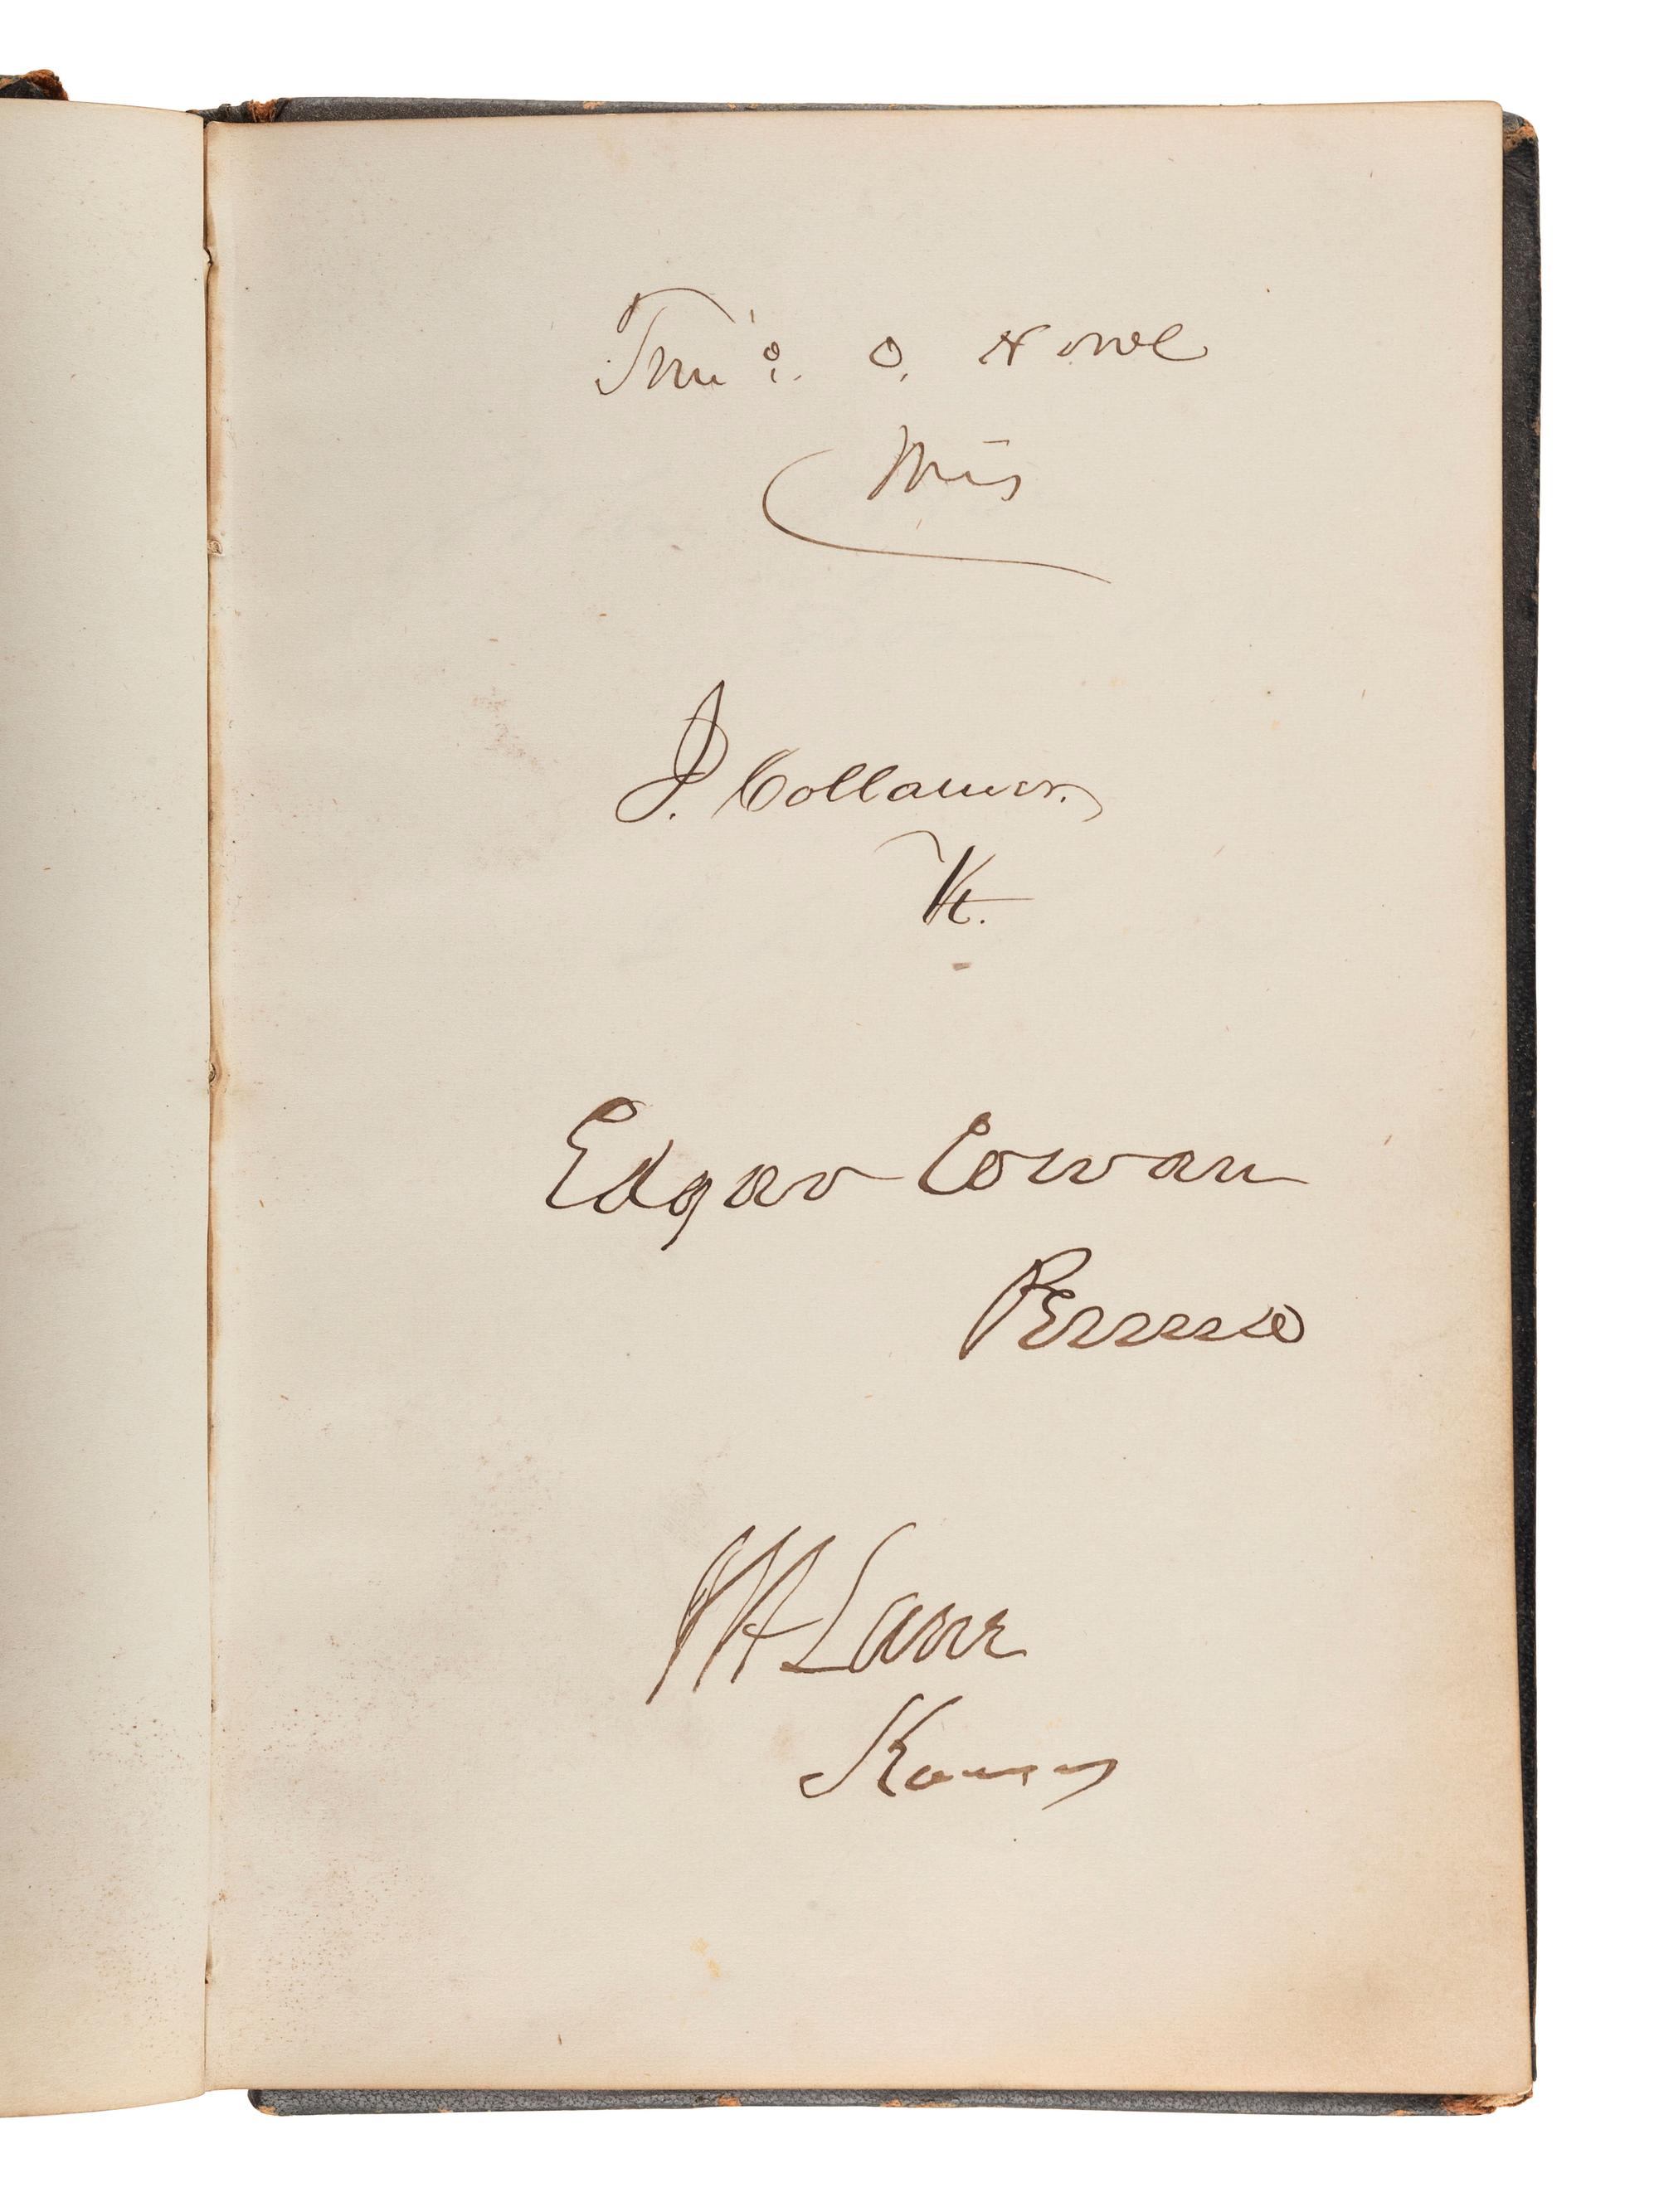 Timo. O. Howe
Wis
J. Collamer.
Vt.
Edgar Cowan
Penna
JH Lane
Kansas